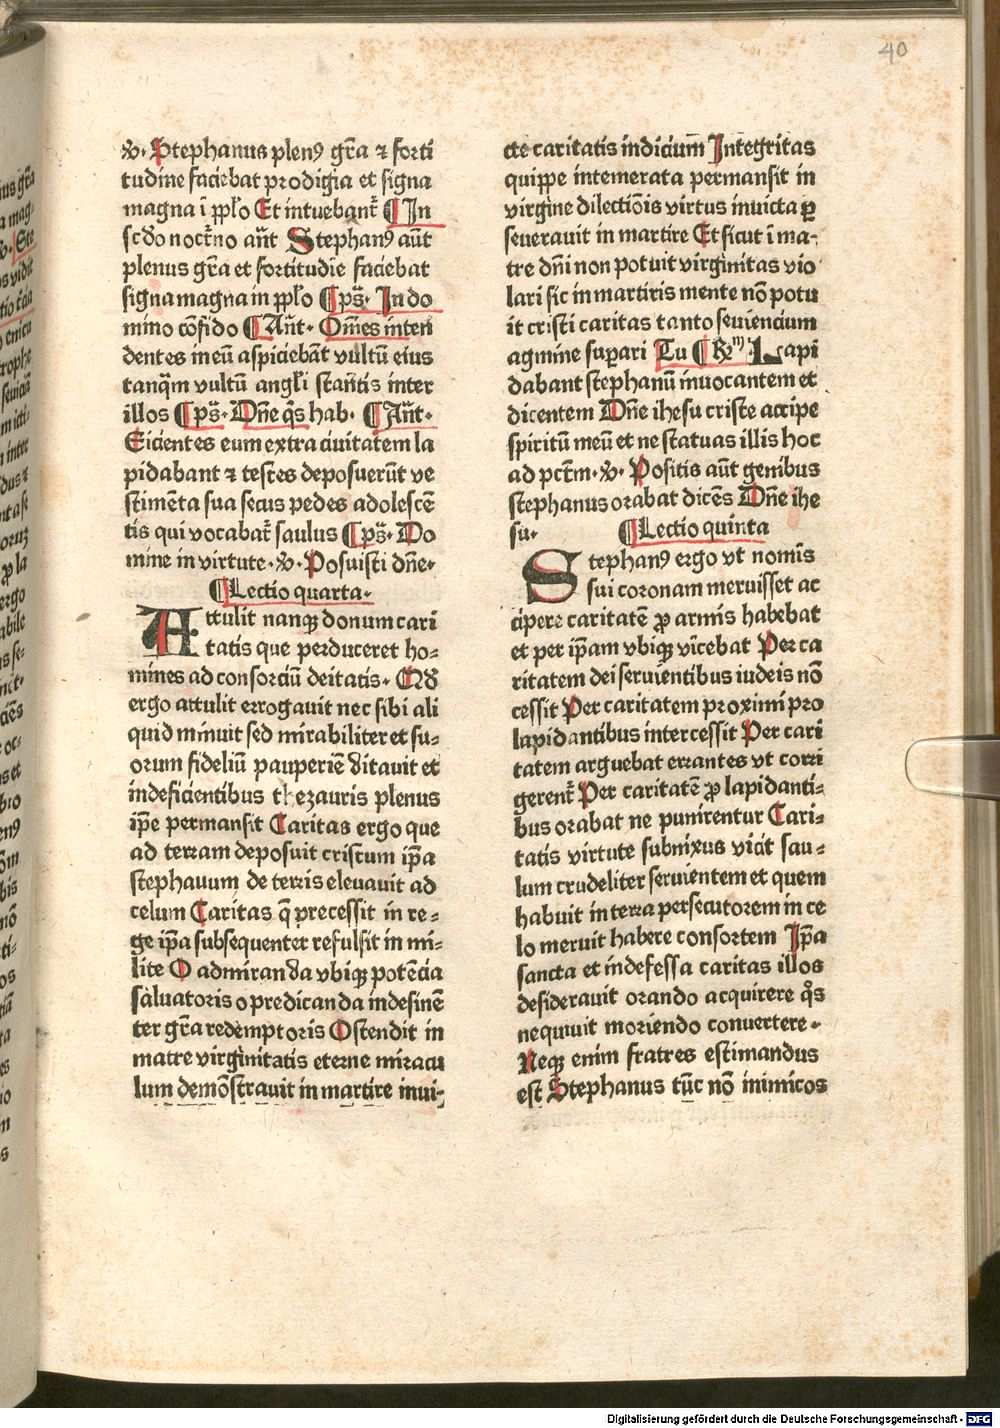 40
℣. Stephanus plenꝰ gr̄a ⁊ forti
tudine faciebat prodigia et signa
magna ī ppl̄o Et intuebant᷑ ¶ In
sc̄do noct᷑no an̄t Stephanꝰ aūt
plenus gr̄a et fortitudīe faciebat
signa magna in ppl̄o ¶ ps̄. In do
mino cōfido ¶ An̄t. Om̄es inten
dentes in eū aspiciebāt vultū eius
tanꝗ̃m vultū angl̄i stan̄tis inter
illos ¶ ps̄. Dn̄e q̄s hab. ¶ An̄t.
Eicientes eum extra ciuitatem la
pidabant ⁊ testes deposuerūt ve
stimēta sua secus pedes adolescē
tis qui vocabat᷑ saulus ¶ ps̄. Do
mine in virtute. ℣. Posuisti dn̄e.
¶ Lectio quarta.
Attulit nanqꝫ donum cari
tatis que perduceret ho-
mines ad consorciū deitatis. Qď
ergo attulit errogauit nec sibi ali
quid minuit sed mirabiliter et su-
orum fideliū pauperiē ditauit et
indeficientibus thezauris plenus
ip̄e permansit Caritas ergo que
ad terram deposuit cristum ip̄a
stephauum de terris eleuauit ad
celum Caritas q̄ precessit in re-
ge ip̄a subsequenter refulsit in mi-
lite O admiranda vbiqꝫ potēcia
saluatoris o predicanda indesinē
ter gr̄a redemptoris Ostendit in
matre virginitatis eterne miracu
lum demōstrauit in martire inui-
cte caritatis indicium̄ Integritas
quippe intemerata permansit in
virgine dilectiōis virtus inuicta ꝑ
seuerauit in martire Et sicut ī ma-
tre dn̄i non potuit virginitas vio
lari sic in martiris mente nō potu
it cristi caritas tanto seuiencium
agmine suꝑari Tu ¶ ℟ Lapi
dabant stephanū inuocantem et
dicentem Dn̄e ihesu criste accipe
spiritū meū et ne statuas illis hoc
ad pctm̄. ℣. Positis aūt genibus
stephanus orabat dicēs Dn̄e ihe
su. ¶ Lectio quinta
Stephanꝰ ergo vt nomīs
sui coronam meruisset ac
cipere caritatē ꝓ armis habebat
et per ip̄am vbiqꝫ vīcebat Per ca
ritatem dei seruientibus iudeis nō
cessit Per caritatem proximi pro
lapidantibus intercessit Per cari
tatem arguebat errantes vt corri
gerent᷑ Per caritatē ꝓ lapidanti-
bus orabat ne punirentur Cari-
tatis virtute submixus vicit sau-
lum crudeliter seruientem et quem
habuit in terra persecutorem in ce
lo meruit habere consortem Ip̄a
sancta et indefessa caritas illos
desiderauit orando acquirere q̊s
nequiuit moriendo conuertere.
Neqꝫ enim fratres estimandus
est Stephanus tūc nō inimicos
Digitalisierung gefördert durch die Deutsche Forschungsgemeinschaft - DFG